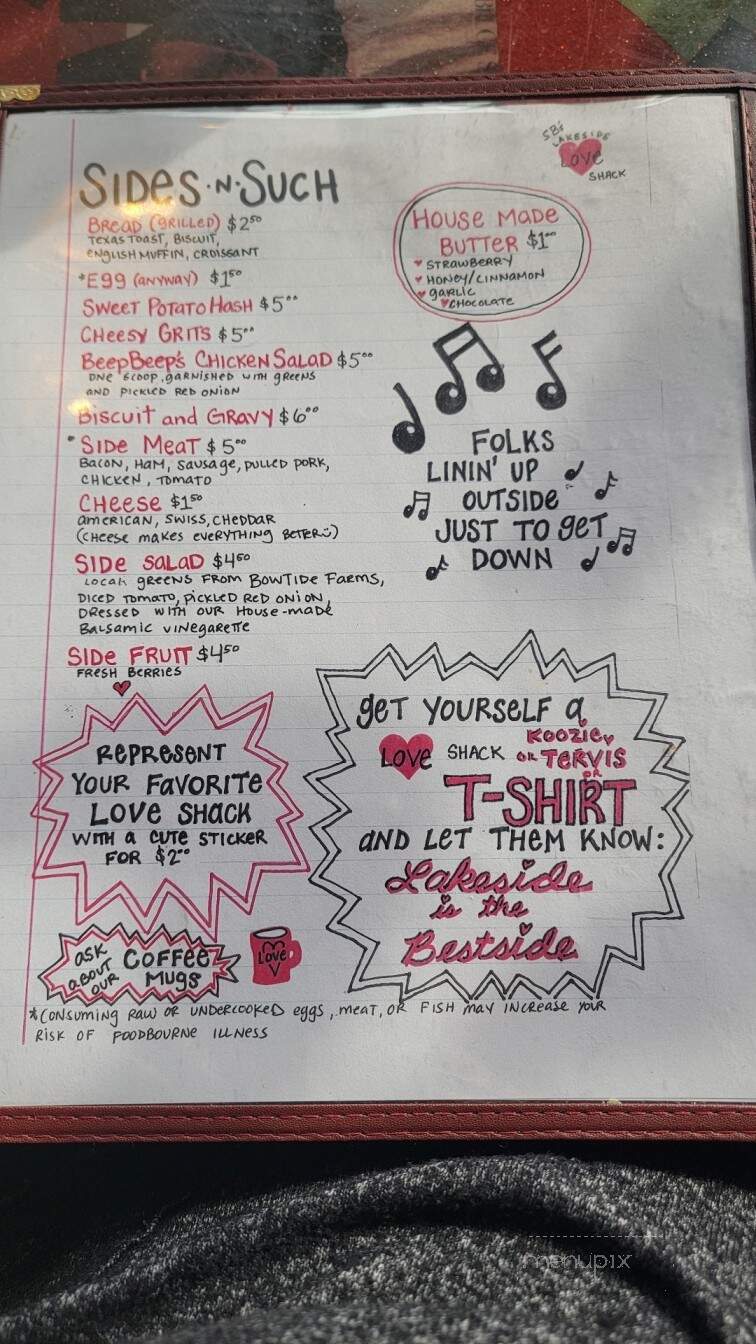 SB's
LAKESIDE
LOVE
SHACK
SIDES·N·SUCH
BREAD (GRILLED) $2⁵⁰
TEXAS TOAST, BISCUIT,
ENGLISH MUFFIN, CROISSANT
*EGG (ANYWAY) $1⁵⁰
SWEET POTATO HASH $5⁰⁰
CHEESY GRITS $5⁰⁰
BEEPBEEP'S CHICKEN SALAD $5⁰⁰
ONE SCOOP, GARNISHED WITH GREENS
AND PICKLED RED ONION
BISCUIT AND GRAVY $6⁰⁰
*SIDE MEAT $5⁰⁰
BACON, HAM, SAUSAGE, PULLED PORK,
CHICKEN, TOMATO
CHEESE $1⁵⁰
AMERICAN, SWISS, CHEDDAR
(CHEESE MAKES EVERYTHING BETER☺)
SIDE SALAD $4⁵⁰
LOCAL GREENS FROM BOWTIDE FARMS,
DICED TOMATO, PICKLED RED ONION,
DRESSED WITH OUR HOUSE-MADE
BALSAMIC VINEGARETTE
SIDE FRUIT $4⁵⁰
FRESH BERRIES
HOUSE MADE
BUTTER $1⁰⁰
♥ STRAWBERRY
♥ HONEY/CINNAMON
♥ GARLIC
♥ CHOCOLATE
FOLKS
LININ' UP
OUTSIDE
JUST TO GET
DOWN
REPRESENT
YOUR FAVORITE
LOVE SHACK
WITH A CUTE STICKER
FOR $2⁰⁰
ASK
ABOUT
OUR
COFFEE
MUGS
LOVE
GET YOURSELF A
KOOZIE,
LOVE SHACK OR TERVIS
OR
T-SHIRT
AND LET THEM KNOW:
Lakeside
is the
Bestside
*CONSUMING RAW OR UNDERCOOKED EGGS, MEAT, OR FISH MAY INCREASE YOUR
RISK OF FOODBOURNE ILLNESS
menupix